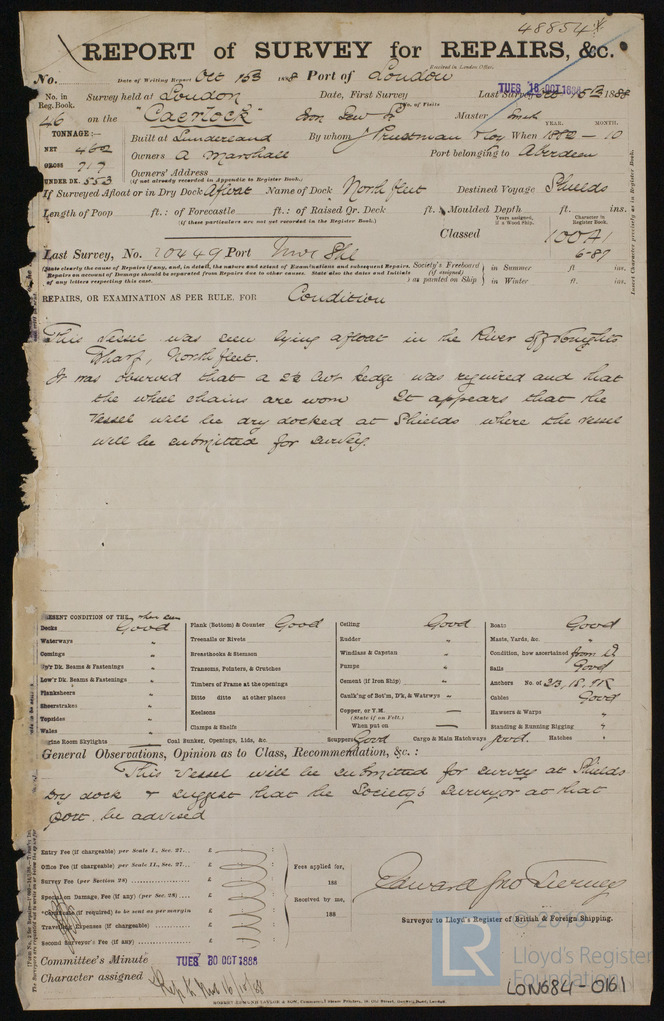 48854
REPORT of SURVEY for REPAIRS, &c.
Received in London Office
No. Date of Writing Report Oct 15th 1888 Port of London
TUES 16 OCT 1888
No. in Reg. Book. Survey held at London Date, First Survey Last Survey Oct 15th 1888
No. of Visits
46 on the "Caerlock" Iron Master Smith
TONNAGE:— YEAR. MONTH.
NET 462 Built at Sunderland By whom J Priestman & Co When 1882 – 10
GROSS 717 Owners A Marshall Port belonging to Aberdeen
UNDER DK. 553 Owners' Address
(if not already recorded in Appendix to Register Book.)
If Surveyed Afloat or in Dry Dock Afloat Name of Dock Northfleet Destined Voyage Shields
Length of Poop ft.: of Forecastle ft.: of Raised Qr. Deck ft. Moulded Depth ft. ins.
(if these particulars are not yet recorded in the Register Book.)
Years assigned, if a Wood Ship. Character in Register Book.
Classed 100A1
6-87
Last Survey, No. 20449 Port Nwc Shl
(State clearly the cause of Repairs if any, and, in detail, the nature and extent of Examinations and subsequent Repairs.
Repairs on account of Damage should be separated from Repairs due to other causes. State also the dates and Initials
of any letters respecting this case.
Society's Freeboard (if assigned) as painted on Ship in Summer ft ins.
in Winter ft. ins.
Insert Character precisely as in Register Book.
REPAIRS, OR EXAMINATION AS PER RULE, FOR Condition
This vessel was seen lying afloat in the River off
Wharf, Northfleet.
It was observed that a 2½ Cwt kedge was required and that
the wheel chains are worn It appears that the
Vessel will be dry docked at Shields where the vessel
will be submitted for survey.
PRESENT CONDITION OF THE when seen
Decks Good
Waterways "
Comings "
Up'r Dk. Beams & Fastenings "
Low'r Dk. Beams & Fastenings "
Planksheers "
Sheerstrakes "
Topsides "
Wales "
Plank (Bottom) & Counter Good
Treenails or Rivets
Breasthooks & Stemson
Transoms, Pointers, & Crutches
Timbers of Frame at the openings
Ditto ditto at other places
Keelsons
Clamps & Shelfs
Ceiling Good
Rudder "
Windlass & Capstan "
Pumps "
Cement (if Iron Ship) "
Caulk'ng of Bot'm, D'k, & Watrwys "
Copper, or Y.M. —
(State if on Felt.)
When put on —
Boats Good
Masts, Yards, &c. "
Condition, how ascertained from D
Sails Good
Anchors No. of 2B, 1S, 1K
Cables Good
Hawsers & Warps "
Standing & Running Rigging "
Engine Room Skylights — Coal Bunker, Openings, Lids, &c. Scuppers Good Cargo & Main Hatchways good. Hatches "
General Observations, Opinion as to Class, Recommendation, &c.:
This vessel will be submitted for survey at Shields
Dry dock & suggest that the Society's Surveyor at that
port be advised
Entry Fee (if chargeable) per Scale I., Sec. 27... £
Office Fee (if chargeable) per Scale II., Sec. 27... £
Survey Fee (per Section 28) £
Special on Damage, Fee (if any) (per Sec. 28) £
*Certificate (if required) to be sent as per margin
Travelling Expenses (if chargeable) £
Second Surveyor's Fee (if any) £
Fees applied for,
188
Received by me,
188
Edward Jno Tierney
Surveyor to Lloyd's Register of British & Foreign Shipping.
Committee's Minute TUES 30 OCT 1888
Character assigned
LR
© 2019
Lloyd's Register
Foundation
LON684-0161